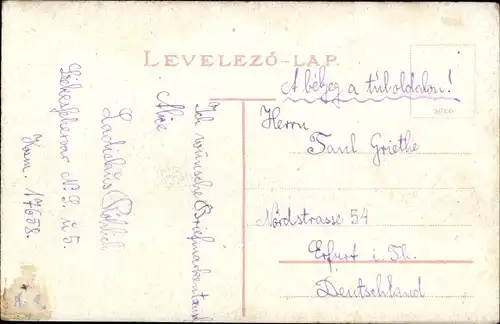 LEVELEZŐ–LAP.
A bélyeg a túloldalon!
Herrn
Paul Griethe
Nordstrasse 54
Erfurt i. Th.
Deutschland
Ich wünsche Briefmarkentausch
Ladislaus
Székesfehérvár